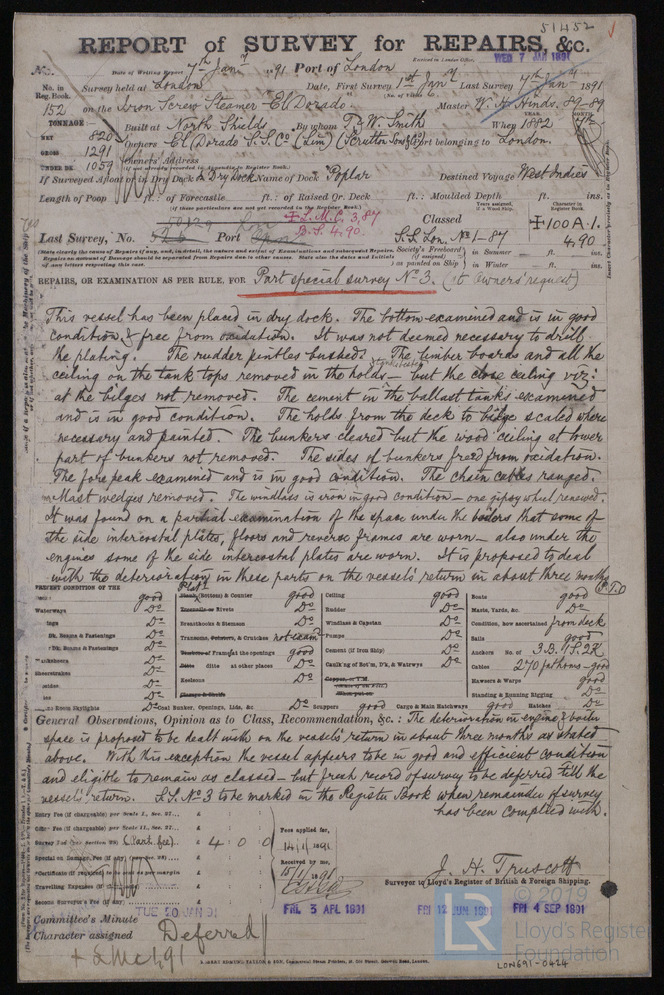 51452
REPORT of SURVEY for REPAIRS, &c.
No. Date of Writing Report 7th Jany 1891 Port of London Received in London Office, WED 7 JAN 1891
No. in Reg. Book. Survey held at London Date, First Survey 1st Jany Last Survey 7th Jany 1891
152 on the Iron Screw Steamer El Dorado. Master W. H. Hinds. 89-89
TONNAGE Built at North Shields By whom T. & W. Smith When 1882
NET 820 Owners El Dorado S.S. Co (Lim) (Scrutton Sons & Co) Port belonging to London.
GROSS 1291 Owners' Address
UNDER DK 1059 (if not already recorded in Appendix to Register Book.)
If Surveyed Afloat or in Dry Dock In Dry Dock Name of Dock Poplar Destined Voyage West Indies
Length of Poop ft.: of Forecastle ft.: of Raised Qr. Deck ft.: Moulded Depth ft. ins.
(if these particulars are not yet recorded in the Register Book.)
Character in Register Book.
L.M.C. 3,87 Classed 100A.1.
B.S. 4,90. 4,90
Last Survey, No. Port S.S. Lon. No 1-87
REPAIRS, OR EXAMINATION AS PER RULE, FOR Part special survey No 3. (at owners' request)
This vessel has been placed in dry dock. The bottom examined and is in good
condition & free from oxidation. It was not deemed necessary to drill
the plating. The rudder pintles bushed. The limber boards and all the
ceiling on the tank tops removed in the holds – but the close ceiling viz:
at the bilges not removed. The cement in the ballast tanks examined
and is in good condition. The holds from the deck to bilge scaled where
necessary and painted. The bunkers cleared but the wood ceiling at lower
part of bunkers not removed. The sides of bunkers freed from oxidation.
The fore peak examined and is in good condition. The chain cables ranged.
Mast wedges removed. The windlass is iron in good condition – one gipsy wheel renewed.
It was found on a partial examination of the space under the boilers that some of
the side intercostal plates, floors and reverse frames are worn – also under the
engines some of the side intercostal plates are worn. It is proposed to deal
with the deterioration in these parts on the vessels' return in about three months
P.T.O
PRESENT CONDITION OF THE
good Plat'g (Bottom) & Counter good Ceiling good Boats good
Waterways Do Rivets Do Rudder Do Masts, Yards, &c. Do
Do Breasthooks & Stemson Do Windlass & Capstan Do Condition, how ascertained from deck
Do Transoms, Pointers, & Crutches not exam'd Pumps Do Sails good
Do Frames at the openings good Cement (If Iron) Do Anchors No. of 3.B. 1S. 2K
Do Ditto ditto at other places Do Caulk'ng of Bot'm, D'k, & Watrwys Do Cables 270 fathoms – good
Do Keelsons Do Hawsers & Warps good
Do Standing & Running Rigging Do
Room Skylights Do Coal Bunker, Openings, Lids, &c. Do Scuppers good Cargo & Main Hatchways good Hatches Do
General Observations, Opinion as to Class, Recommendation, &c.: The deterioration in engine & boiler
space is proposed to be dealt with on the vessels' return in about three months as stated
above. With this exception the vessel appears to be in good and efficient condition
and eligible to remain as classed – but fresh record of survey to be deferred till the
vessel's return. S.S. No 3 to be marked in the Register Book when remainder of survey
has been complied with.
Entry Fee (if chargeable) per Scale I., Sec. 27... £ : :
Office Fee (if chargeable) per Scale II., Sec. 27... £ : : Fees applied for,
Survey Fee (per Section 28) (Part fee) £ 4 : 0 : 0 14/1 1891
Special on Damage Fee (if any) (per Sec. 28) £ : : Received by me,
Certificate (if required) to be as per margin £ : : 15/1 1891
Travelling Expenses (if any) £ : : J. H. Truscott
Second Surveyor's Fee (if any) £ : : Surveyor to Lloyd's Register of British & Foreign Shipping.
Committee's Minute TUE 20 JAN 91 FRI. 3 APL 1891 FRI 12 JUN 1891 FRI 4 SEP 1891
Character assigned Deferred
+ LMC 1,91
LON691-0424
© 2019
LR
Lloyd's Register
Foundation